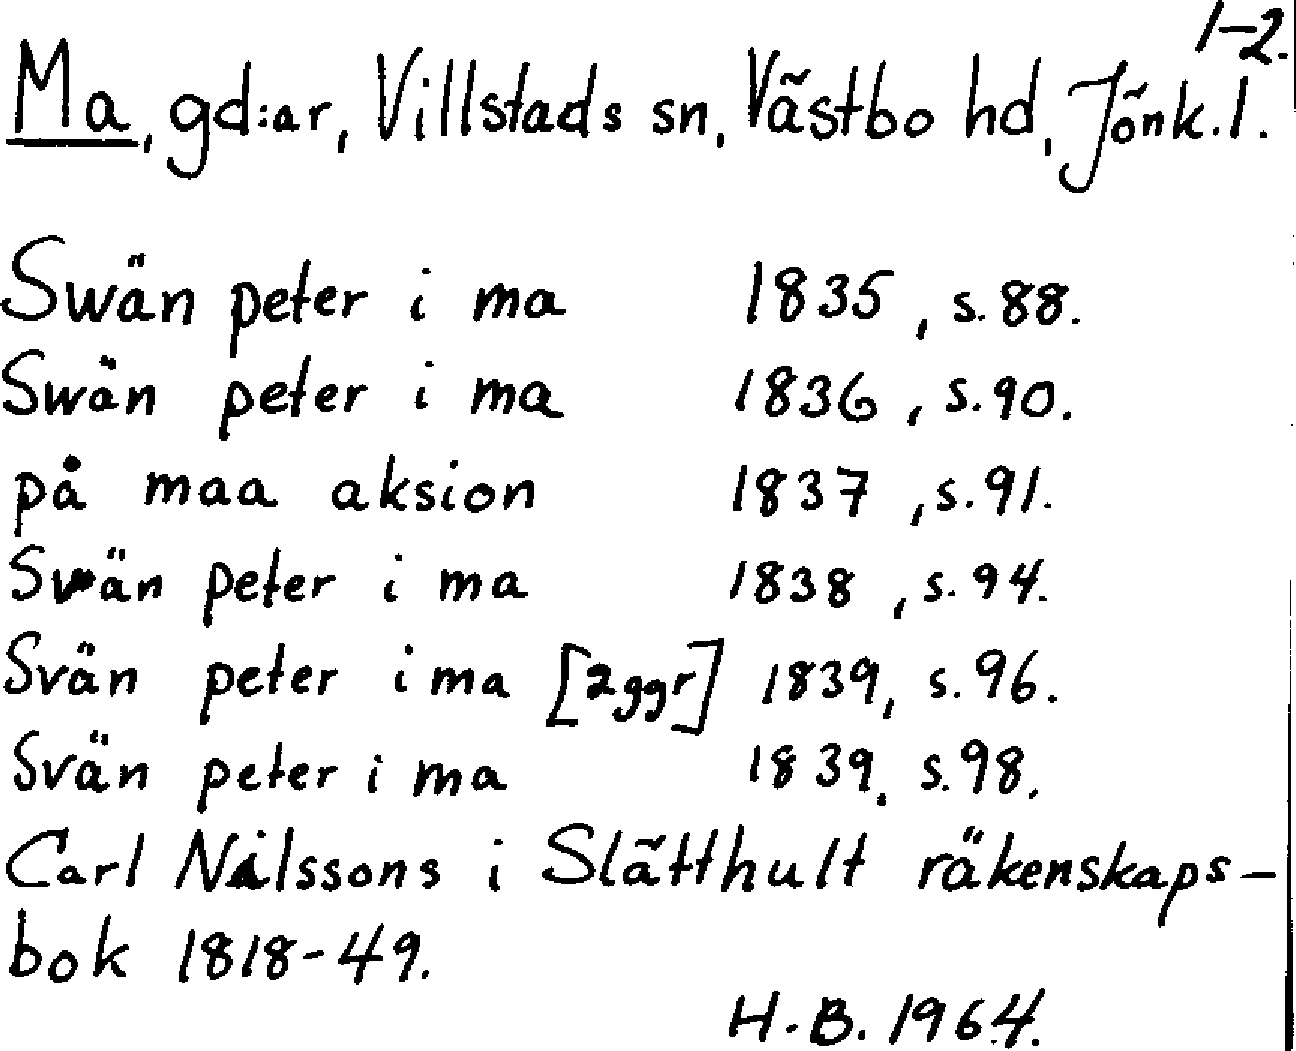 1-2.
Ma, gd:ar, Villstads sn, Västbo hd, Jönk.l.
Swän peter i ma 1835, s.88.
Swän peter i ma 1836, s.90.
på maa aksion 1837, s.91.
Svän peter i ma 1838, s.94.
Svän peter i ma [2ggr] 1839, s.96.
Svän peter i ma 1839, s.98.
Carl Nilssons i Slätthult räkenskaps-
bok 1818-49.
H.B. 1964.